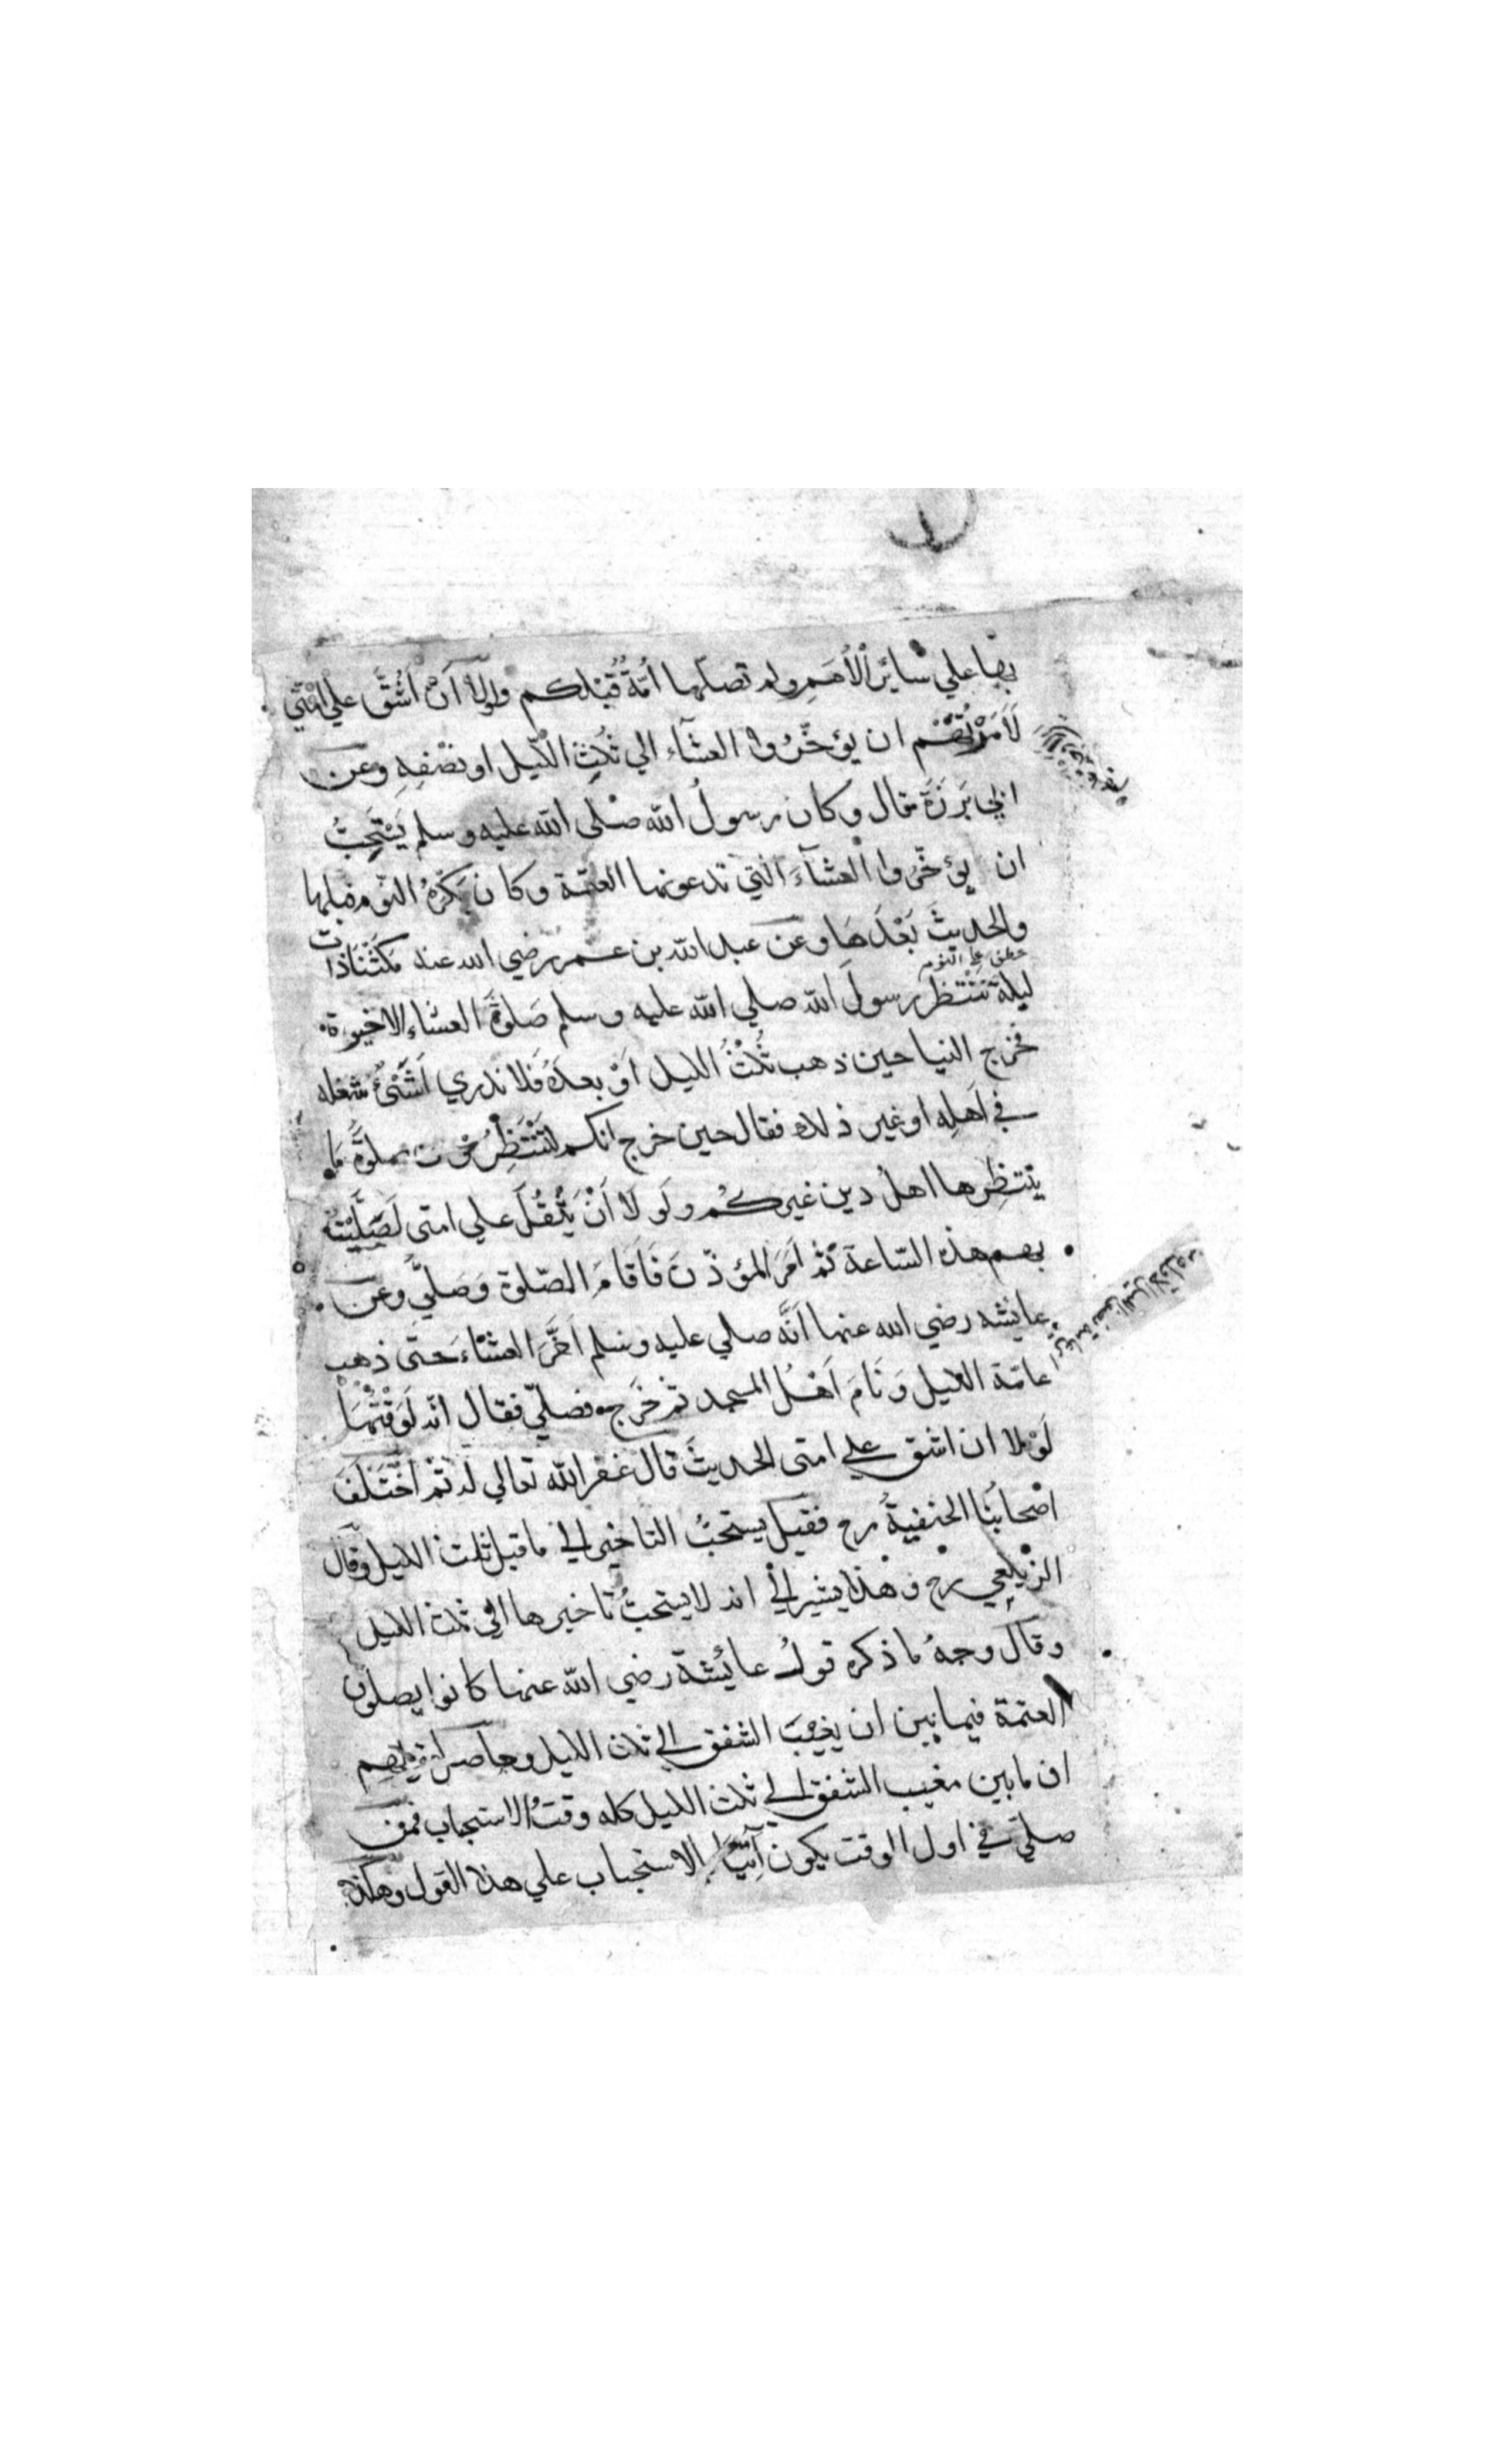 بها علي سائر الأُمَمِ ولم تصلّها أُمّةٌ قَبْلكم ولولا اَنْ اَشُقَّ علي امّتي
لَأَمَرْتُهُمْ ان يؤخّرُوا العشآء الي ثُلُثِ الّليل او نصْفِهِ وعن
ابي بَرْزَةَ قال وكان رسولُ الله صلى الله عليه وسلم يَسْتَحِبُّ
ان يؤخّرُوا العشآءَ الّتي تدعونها العتمة وكان يَكْرَهُ النّوم قبلها
والحديثَ بَعْدَهَا وعن عبد الله بن عمر رضي الله عنه مَكَثْنَا ذات
عطف علي النوم
ليلة نَنْتَظر رسولَ الله صلي الله عليه وسلم صَلوةَ العشاء الاخيرة
فخرج الينا حين ذهب ثُلُثُ الليل اَوْ بعدَهُ فَلا ندري اَشَيْئٌ شغله
في اَهلِه او غير ذلك فقال حين خرج انكم لتَنْتَظِرُون صلوةً ما
ينتظِرها اهلُ دين غيركُم ولَولَا اَنْ يَثْقُلَ علي امتى لَصَلَّيْتُ
بهم هذه السّاعة ثم اَمَرَ المؤذّنَ فَاَقَامَ الصّلوة وَصَلّي وعن
عايشه رضي الله عنها اَنَّه صلي عليه وسلم اَخَّرَ العشَاءَ حتى ذهب
عامّة الليل وَنَامَ اَهْلُ المسجد ثم خَرَجَ فصلّي فقال انّه لَوَقْتُهَا
لَوْلا ان اشق علي امتى الحديثَ قال غفر الله تعالي له ثم اخْتَلَفَ
اصْحابُنا الحنفيةُ رح فقيل يستحبُّ التاخير الي ما قبل ثلث الليل وقال
الزيلعي رح وهذا يشير الي انه لا يستحبُّ تاخيرها الي ثلث الليل
وقال وجهُ ما ذكره قولُ عائشة رضي الله عنها كانوا يصلون
العتمة فيما بين ان يغيبَ الشفق الي ثلث الليل وحاصل
ان ما بين مغيب الشفق الي ثلث الليل كله وقتُ الاستحباب فمن
صلّي في اول الوقت يكون آتِيًا بالاستحباب علي هذا القول وهكذا